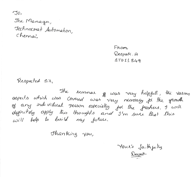 To,
The Manager,
Technocrat Automation,
Chennai.
From
Deepak.
Respected Sir,
The seminar was very helpful, the various
aspects which was covered was very necessary for the growth
of any individual person especially for the freshers. I will
definitely apply this thoughts and I'm sure that this
will help to build my future.
Thanking you,
Your's faithfully
Deepak